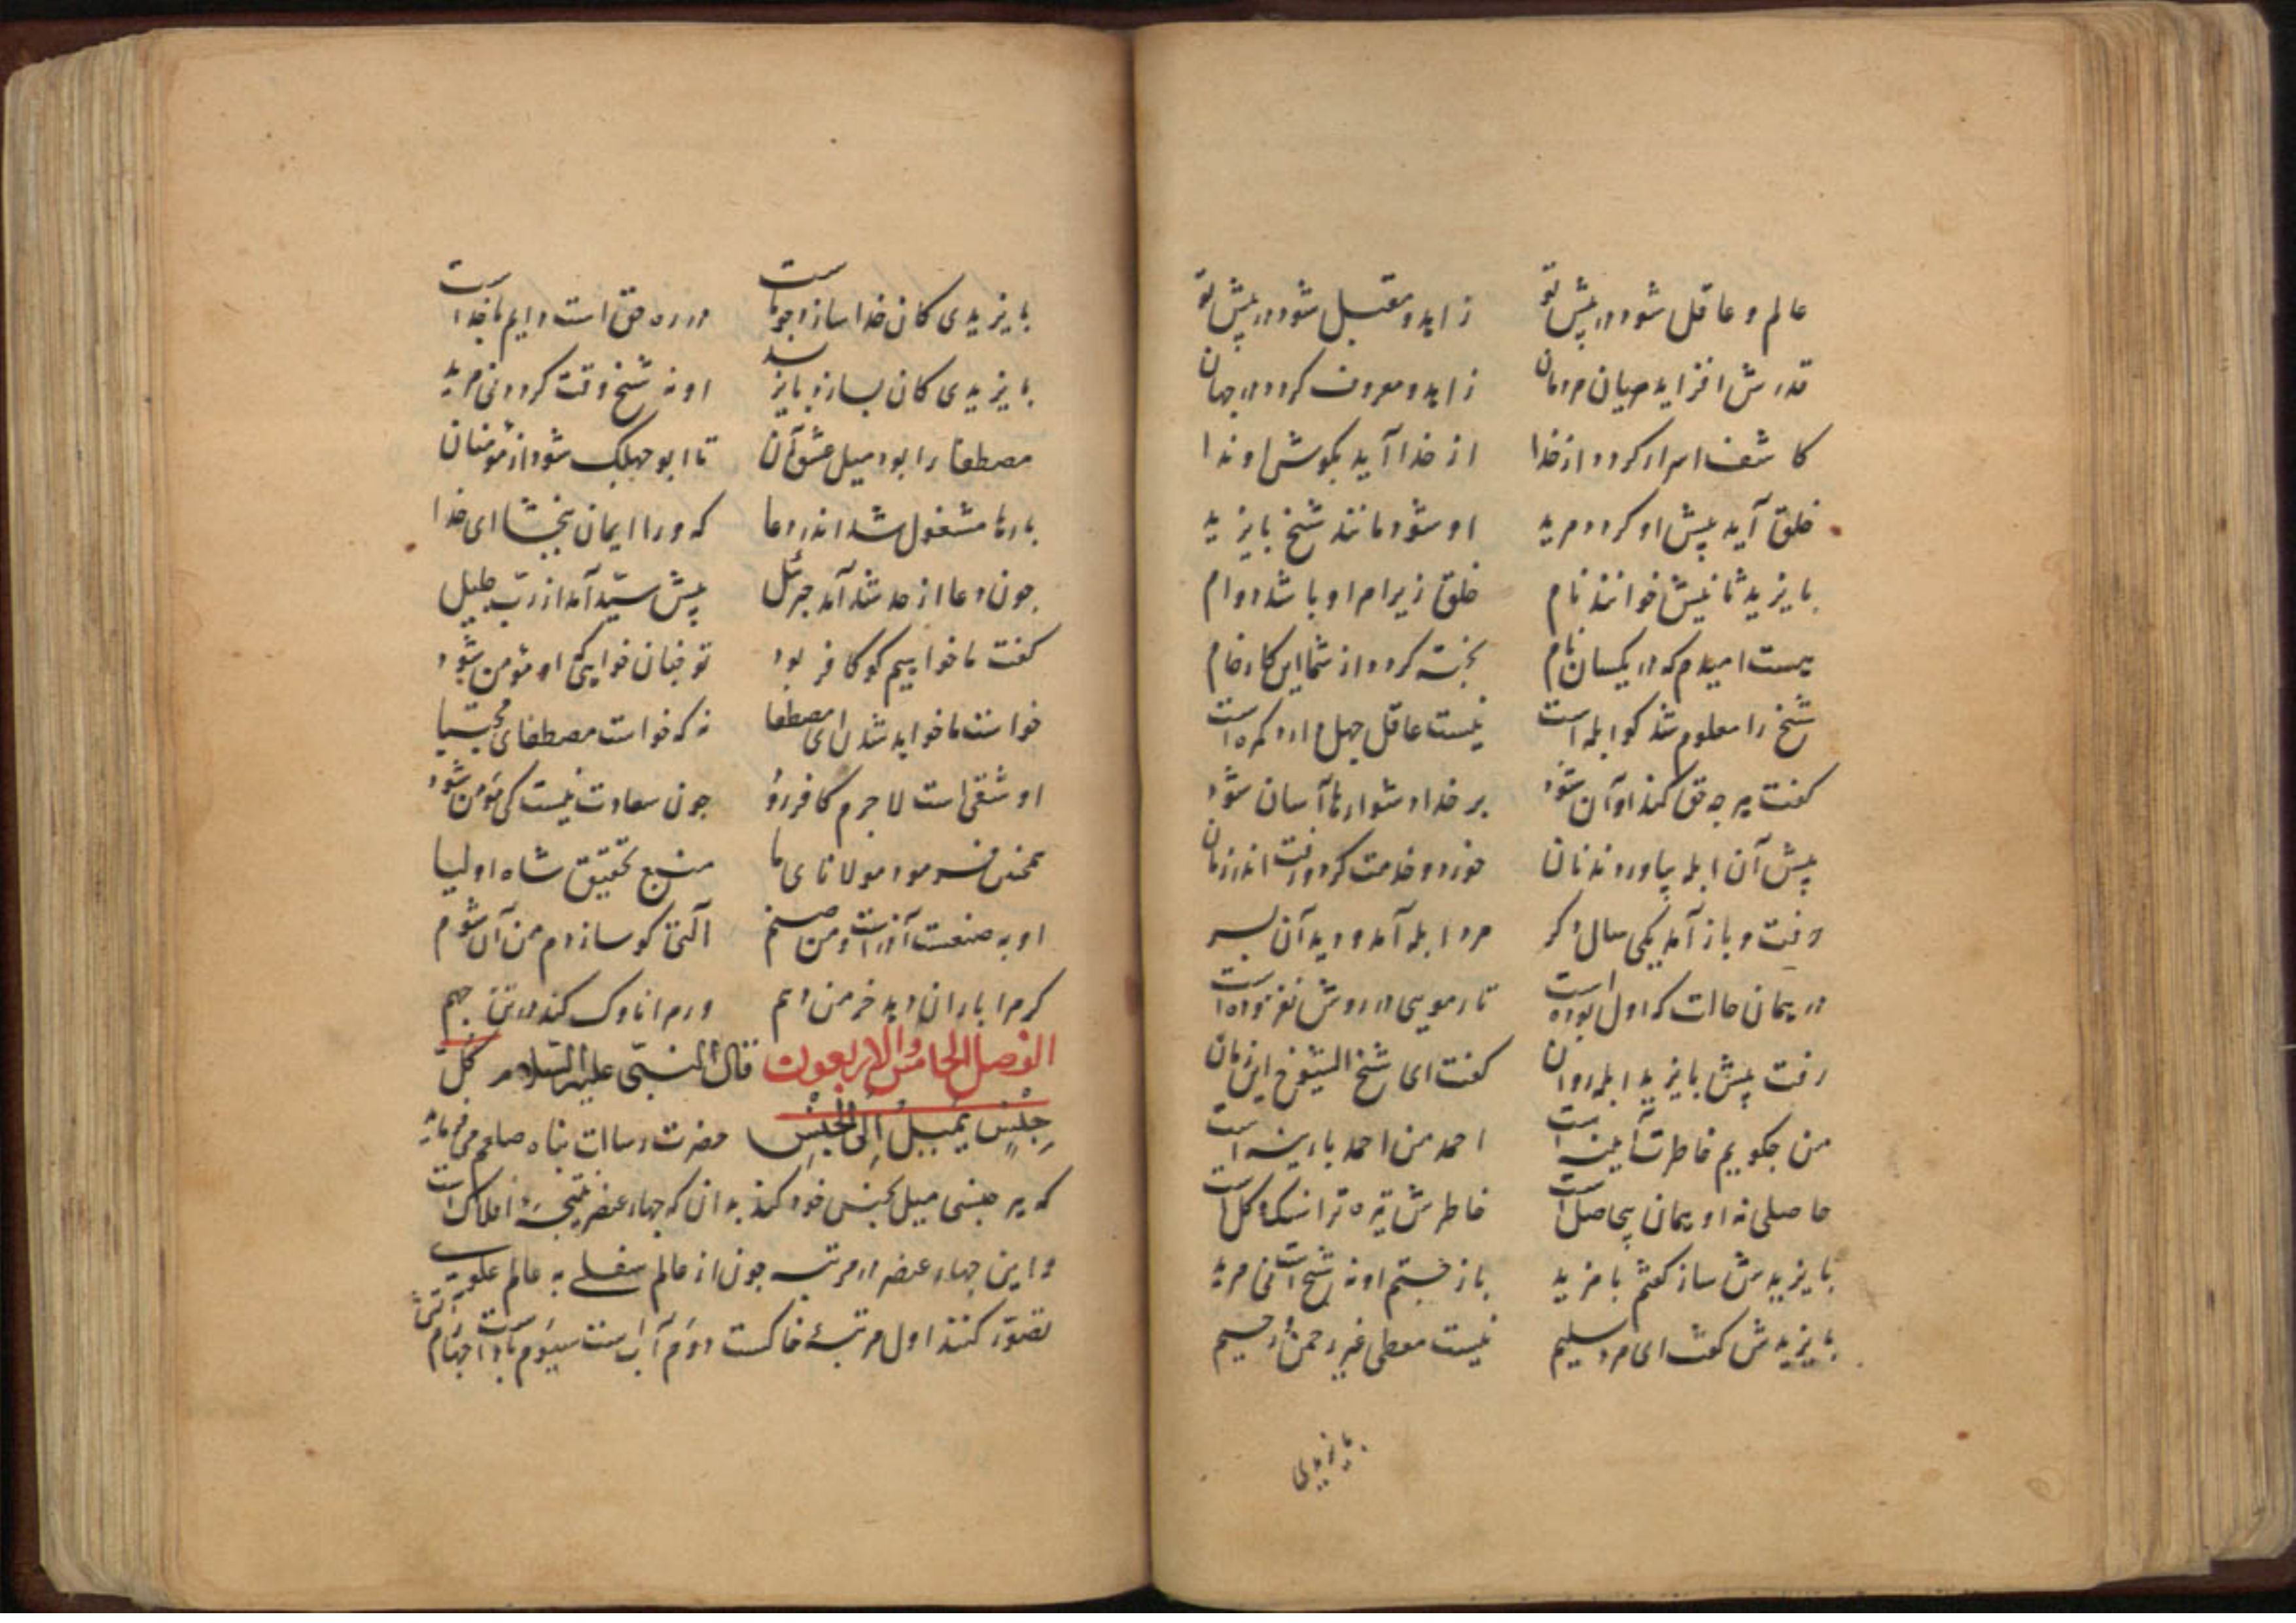 عالم و عاقل شود در پیش تو زاهد و مقبل شود در پیش تو
قدرش افزاید میان مردمان زاهد و معروف کردد در جهان
کاشف اسرار کردد از خدا از خدا آید بکوش او ندا
خلق آید پیش او کردد مرید او شود مانند شیخ بایزید
بایزید ثانیش خوانند نام خلق زیر امر او باشد دوام
هست امیدم که در یکسان تمام پخته کردد از شما این کار خام
شیخ را معلوم شد کو ابله است نیست عاقل جهل دارد کمره است
کفت هر چه حق کند او آن شود بر خدا دشوارها آسان شود
پیش آن ابله بیاوردند نان خورد و خدمت کرد و رفت اندر زمان
رفت و باز آمد یکی سال دکر مرد ابله آمد و دید آن پسر
در همان حالت که اول بوده است تار مویی در روش نفزوده است
رفت پیش بایزید ابله روان کفت ای شیخ الشیوخ این زمان
من چکویم خاطرت آیینه است احمد من احمد پارینه است
حاصلی نه او همان بیحاصل است خاطرش تیره تر از سنک و کل است
بایزیدش ساز کفتم بامزید باز جستم او نه شیخ است نی مرید
بایزیدش کفت ای مرد سلیم نیست معطی غیر رحمن و رحیم
بایزیدی
بایزیدی کان خدا سازد جداست در ره حق است دایم با خداست
بایزیدی کان بسازد بایزید او نه شیخ وقت کردد نی مرید
مصطفا را بود میل عشق آن تا ابو جهلک شود از مؤمنان
بارها مشغول شد اندر دعا که ورا ایمان ببخشا ای خدا
چون دعا از حد شد آمد جبرئیل پیش سید آمد از رب جلیل
کفت ما خواهیم کو کافر بود تو چنان خواهی که او مؤمن شود
خواست ما خواهد شدن ای مصطفا نه که خواست مصطفای مجتبا
او شقی است لاجرم کافر رود چون سعادت نیست کی مؤمن شود
همچنین فرمود مولانای ما منبع تحقیق شاه اولیا
او به صنعت آزر است و من صنم آلتی کو سازدم من آن شوم
کر مرا باران دهد خرمن دهم ور مرا ناوک کند در تن جهم
الفصل الخامس والاربعون قال النبی علیه السلام کل
جنس یمیل الی الجنس حضرت رسالت پناه صلعم می فرماید
که هر جنسی میل بجنس خود کند بدان که چهار عنصر نتیجهٔ افلاک است
و این چهار عنصر در مرتبه چون از عالم سفلی به عالم علوی
تصور کنند اول مرتبهٔ خاکست دوم آب است سیوم باد است چهارم آتش